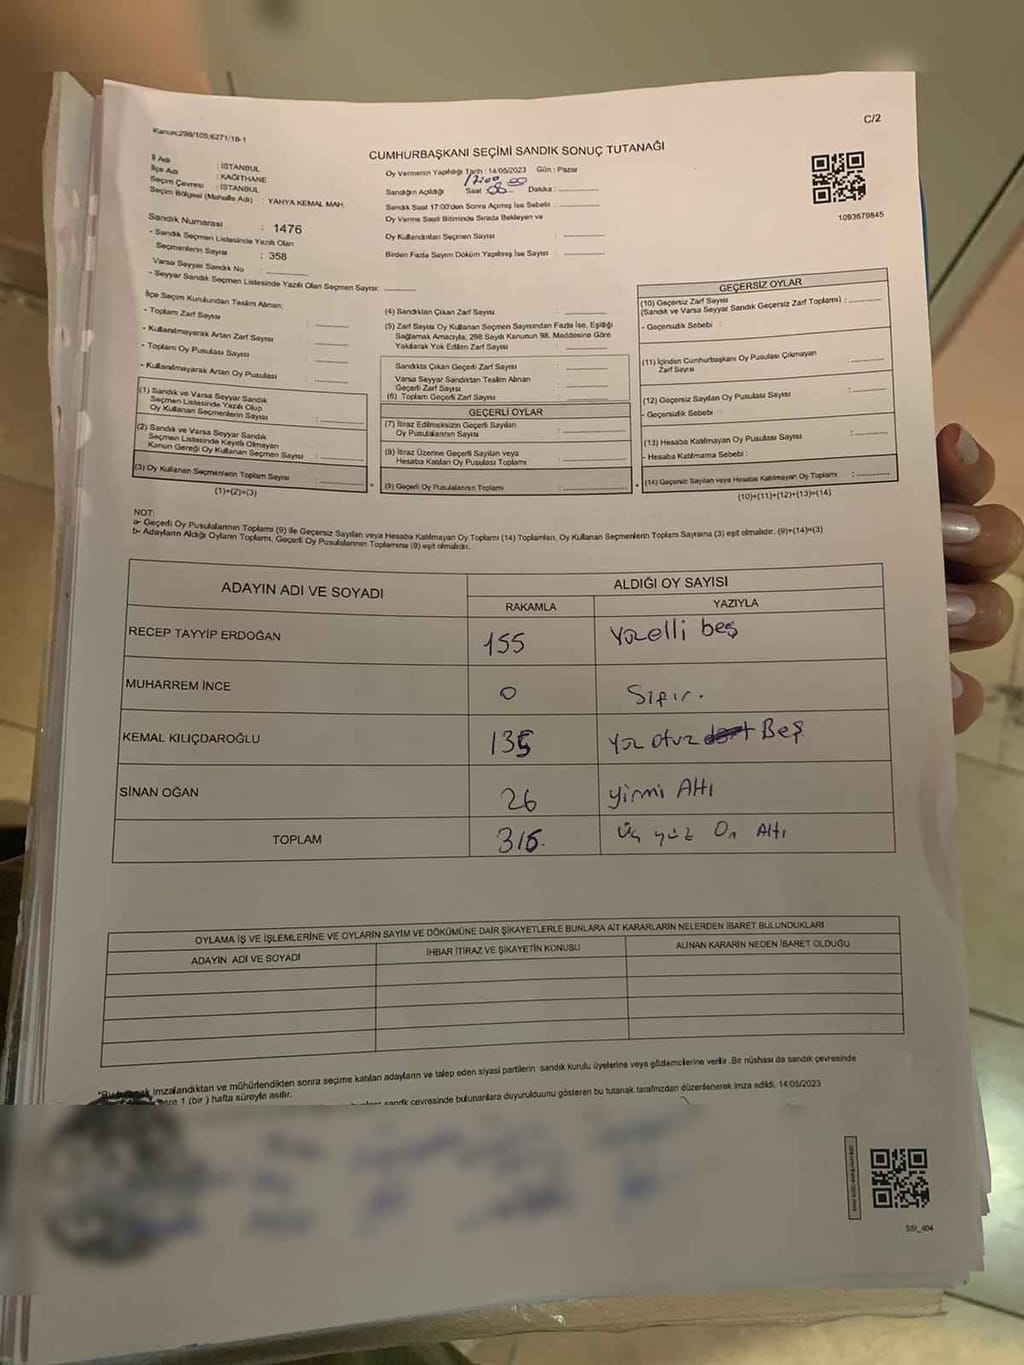 Kanun:298/105,6271/18-1
C/2
CUMHURBAŞKANI SEÇİMİ SANDIK SONUÇ TUTANAĞI
İl Adı : İSTANBUL
İlçe Adı : KAĞITHANE
Seçim Çevresi : İSTANBUL
Seçim Bölgesi (Mahalle Adı) : YAHYA KEMAL MAH.
Oy Vermenin Yapıldığı Tarih : 14/05/2023 Gün : Pazar
17:00
Sandığın Açıldığı Saat : 08 00 Dakika :
Sandık Saat 17:00'den Sonra Açılmış İse Sebebi :
Oy Verme Saati Bitiminde Sırada Bekleyen ve
Oy Kullandırılan Seçmen Sayısı :
Birden Fazla Sayım Döküm Yapılmış İse Sayısı :
1093679845
Sandık Numarası : 1476
- Sandık Seçmen Listesinde Yazılı Olan
Seçmenlerin Sayısı : 358
Varsa Seyyar Sandık No :
- Seyyar Sandık Seçmen Listesinde Yazılı Olan Seçmen Sayısı:
İlçe Seçim Kurulundan Teslim Alınan;
- Toplam Zarf Sayısı :
- Kullanılmayarak Artan Zarf Sayısı :
- Toplam Oy Pusulası Sayısı :
- Kullanılmayarak Artan Oy Pusulası :
(1) Sandık ve Varsa Seyyar Sandık
Seçmen Listesinde Yazılı Olup
Oy Kullanan Seçmenlerin Sayısı :
(2) Sandık ve Varsa Seyyar Sandık
Seçmen Listesinde Kayıtlı Olmayan
Kanun Gereği Oy Kullanan Seçmen Sayısı :
(3) Oy Kullanan Seçmenlerin Toplam Sayısı :
(1)+(2)=(3)
=
(4) Sandıktan Çıkan Zarf Sayısı :
(5) Zarf Sayısı Oy Kullanan Seçmen Sayısından Fazla İse, Eşitliği
Sağlamak Amacıyla; 298 Sayılı Kanunun 98. Maddesine Göre
Yakılarak Yok Edilen Zarf Sayısı :
Sandıkta Çıkan Geçerli Zarf Sayısı :
Varsa Seyyar Sandıktan Teslim Alınan
Geçerli Zarf Sayısı :
(6) Toplam Geçerli Zarf Sayısı :
GEÇERLİ OYLAR
(7) İtiraz Edilmeksizin Geçerli Sayılan
Oy Pusulalarının Sayısı :
(8) İtiraz Üzerine Geçerli Sayılan veya
Hesaba Katılan Oy Pusulası Toplamı :
(9) Geçerli Oy Pusulalarının Toplamı :
+
GEÇERSİZ OYLAR
(10) Geçersiz Zarf Sayısı
(Sandık ve Varsa Seyyar Sandık Geçersiz Zarf Toplamı) :
- Geçersizlik Sebebi :
(11) İçinden Cumhurbaşkanı Oy Pusulası Çıkmayan
Zarf Sayısı :
(12) Geçersiz Sayılan Oy Pusulası Sayısı :
- Geçersizlik Sebebi :
(13) Hesaba Katılmayan Oy Pusulası Sayısı :
- Hesaba Katılmama Sebebi :
(14) Geçersiz Sayılan veya Hesaba Katılmayan Oy Toplamı :
(10)+(11)+(12)+(13)=(14)
NOT:
a- Geçerli Oy Pusulalarının Toplamı (9) ile Geçersiz Sayılan veya Hesaba Katılmayan Oy Toplamı (14) Toplamları, Oy Kullanan Seçmenlerin Toplam Sayısına (3) eşit olmalıdır. (9)+(14)=(3)
b- Adayların Aldığı Oyların Toplamı, Geçerli Oy Pusulalarının Toplamına (9) eşit olmalıdır.
ADAYIN ADI VE SOYADI
ALDIĞI OY SAYISI
RAKAMLA YAZIYLA
RECEP TAYYİP ERDOĞAN 155 Yüzelli beş
MUHARREM İNCE 0 Sıfır.
KEMAL KILIÇDAROĞLU 135 Yüz otuz dört Beş
SİNAN OĞAN 26 yirmi Altı
TOPLAM 316. Üç yüz On Altı
OYLAMA İŞ VE İŞLEMLERİNE VE OYLARIN SAYIM VE DÖKÜMÜNE DAİR ŞİKAYETLERLE BUNLARA AİT KARARLARIN NELERDEN İBARET BULUNDUKLARI
ADAYIN ADI VE SOYADI İHBAR İTİRAZ VE ŞİKAYETİN KONUSU ALINAN KARARIN NEDEN İBARET OLDUĞU
imzalandıktan ve mühürlendikten sonra seçime katılan adayların ve talep eden siyasi partilerin sandık kurulu üyelerine veya gözlemcilerine verilir. Bir nüshası da sandık çevresinde
1 (bir) hafta süreyle asılır.
sandık çevresinde bulunanlara duyurulduğunu gösteren bu tutanak tarafımızdan düzenlenerek imza edildi. 14/05/2023
SSI_404